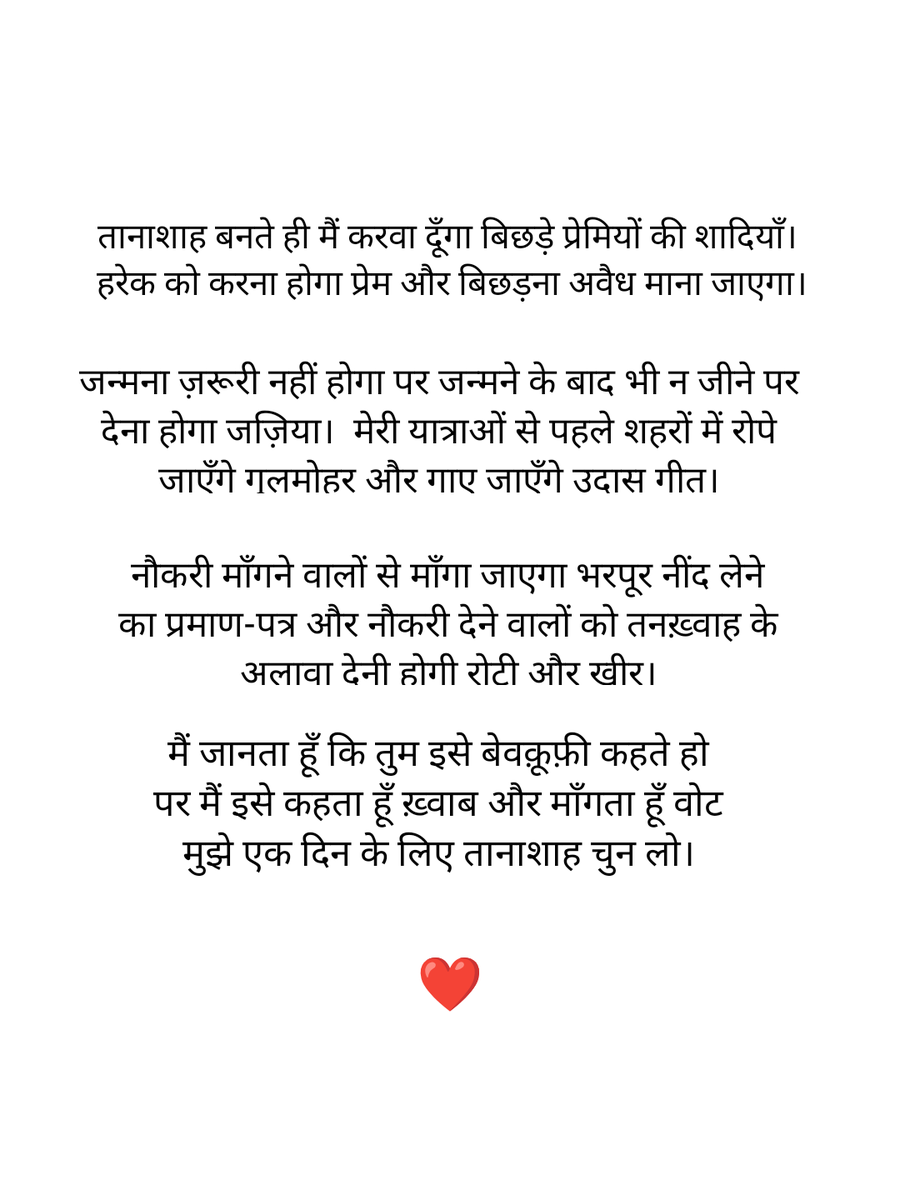 तानाशाह बनते ही मैं करवा दूँगा बिछड़े प्रेमियों की शादियाँ।
हरेक को करना होगा प्रेम और बिछड़ना अवैध माना जाएगा।
जन्मना ज़रूरी नहीं होगा पर जन्मने के बाद भी न जीने पर
देना होगा जज़िया। मेरी यात्राओं से पहले शहरों में रोपे
जाएँगे गुलमोहर और गाए जाएँगे उदास गीत।
नौकरी माँगने वालों से माँगा जाएगा भरपूर नींद लेने
का प्रमाण-पत्र और नौकरी देने वालों को तनख़्वाह के
अलावा देनी होगी रोटी और खीर।
मैं जानता हूँ कि तुम इसे बेवक़ूफ़ी कहते हो
पर मैं इसे कहता हूँ ख़्वाब और माँगता हूँ वोट
मुझे एक दिन के लिए तानाशाह चुन लो।